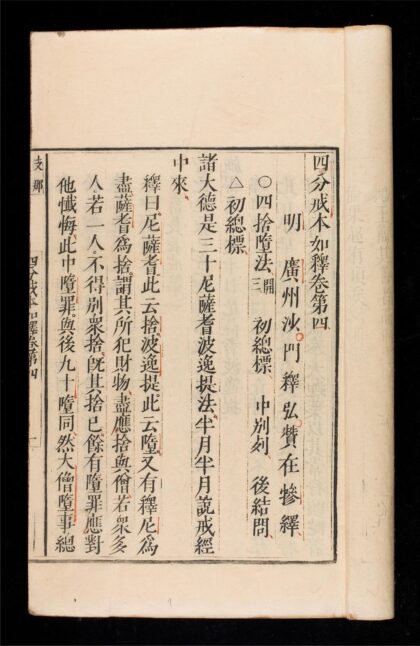 四分戒本如釋卷第四
明 廣州沙門釋弘贊在犙繹
○四捨墮法開三 初總標 中別列 後結問
△初總標
諸大德是三十尼薩耆波逸提法半月半月說戒經
中來
釋曰尼薩耆此云捨波逸提此云墮又有釋尼為
盡薩耆為捨謂其所犯財物盡應捨與僧若衆多
人若一人不得別衆捨既其捨已餘有墮罪應對
他懺悔此中墮罪與後九十墮同然大僧墮事總
支那
四分戒本如釋卷第四
一